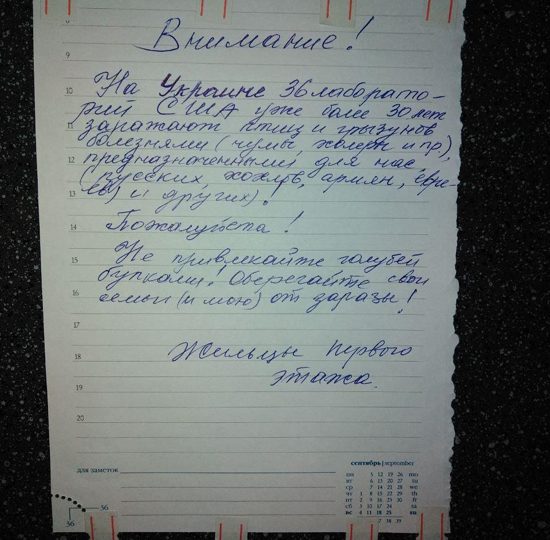 Внимание!
9
10 На Украине 36 лаборато-
рий США уже более 30 лет
11 заражают птиц и грызунов
болезнями (чумы, холеры и пр),
12 предназначенными для нас,
(русских, хохлов, армян, евре-
13 ев) и других).
14 Пожалуйста!
15 Не привлекайте голубей
булками! Оберегайте свои
16 семьи (и мою) от заразы!
17
18 Жильцы первого
19 этажа.
20
для заметок
сентябрь | september
пн 5 12 19 26 mo
вт 6 13 20 27 tu
ср 7 14 21 28 we
чт 1 8 15 22 29 th
пт 2 9 16 23 30 fr
сб 3 10 17 24 sa
вс 4 11 18 25 su
36 36